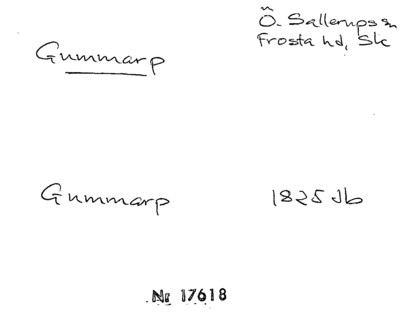 Gummarp
Ö. Sallerups sn
Frosta hd, Sk
Gummarp
1825 Jb
Nr 17618